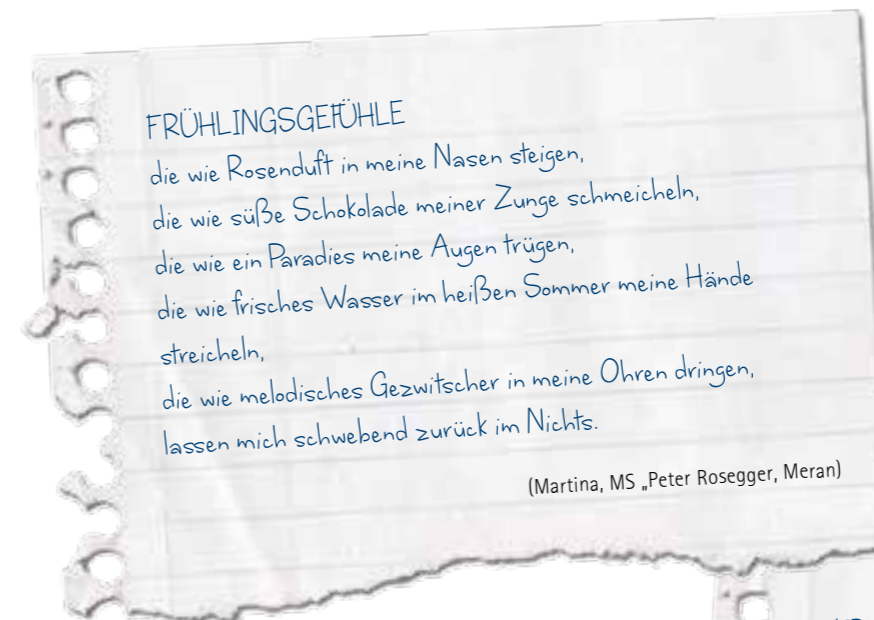 FRÜHLINGSGEFÜHLE
die wie Rosenduft in meine Nasen steigen,
die wie süße Schokolade meiner Zunge schmeicheln,
die wie ein Paradies meine Augen trügen,
die wie frisches Wasser im heißen Sommer meine Hände
streicheln,
die wie melodisches Gezwitscher in meine Ohren dringen,
lassen mich schwebend zurück im Nichts.
(Martina, MS „Peter Rosegger, Meran)